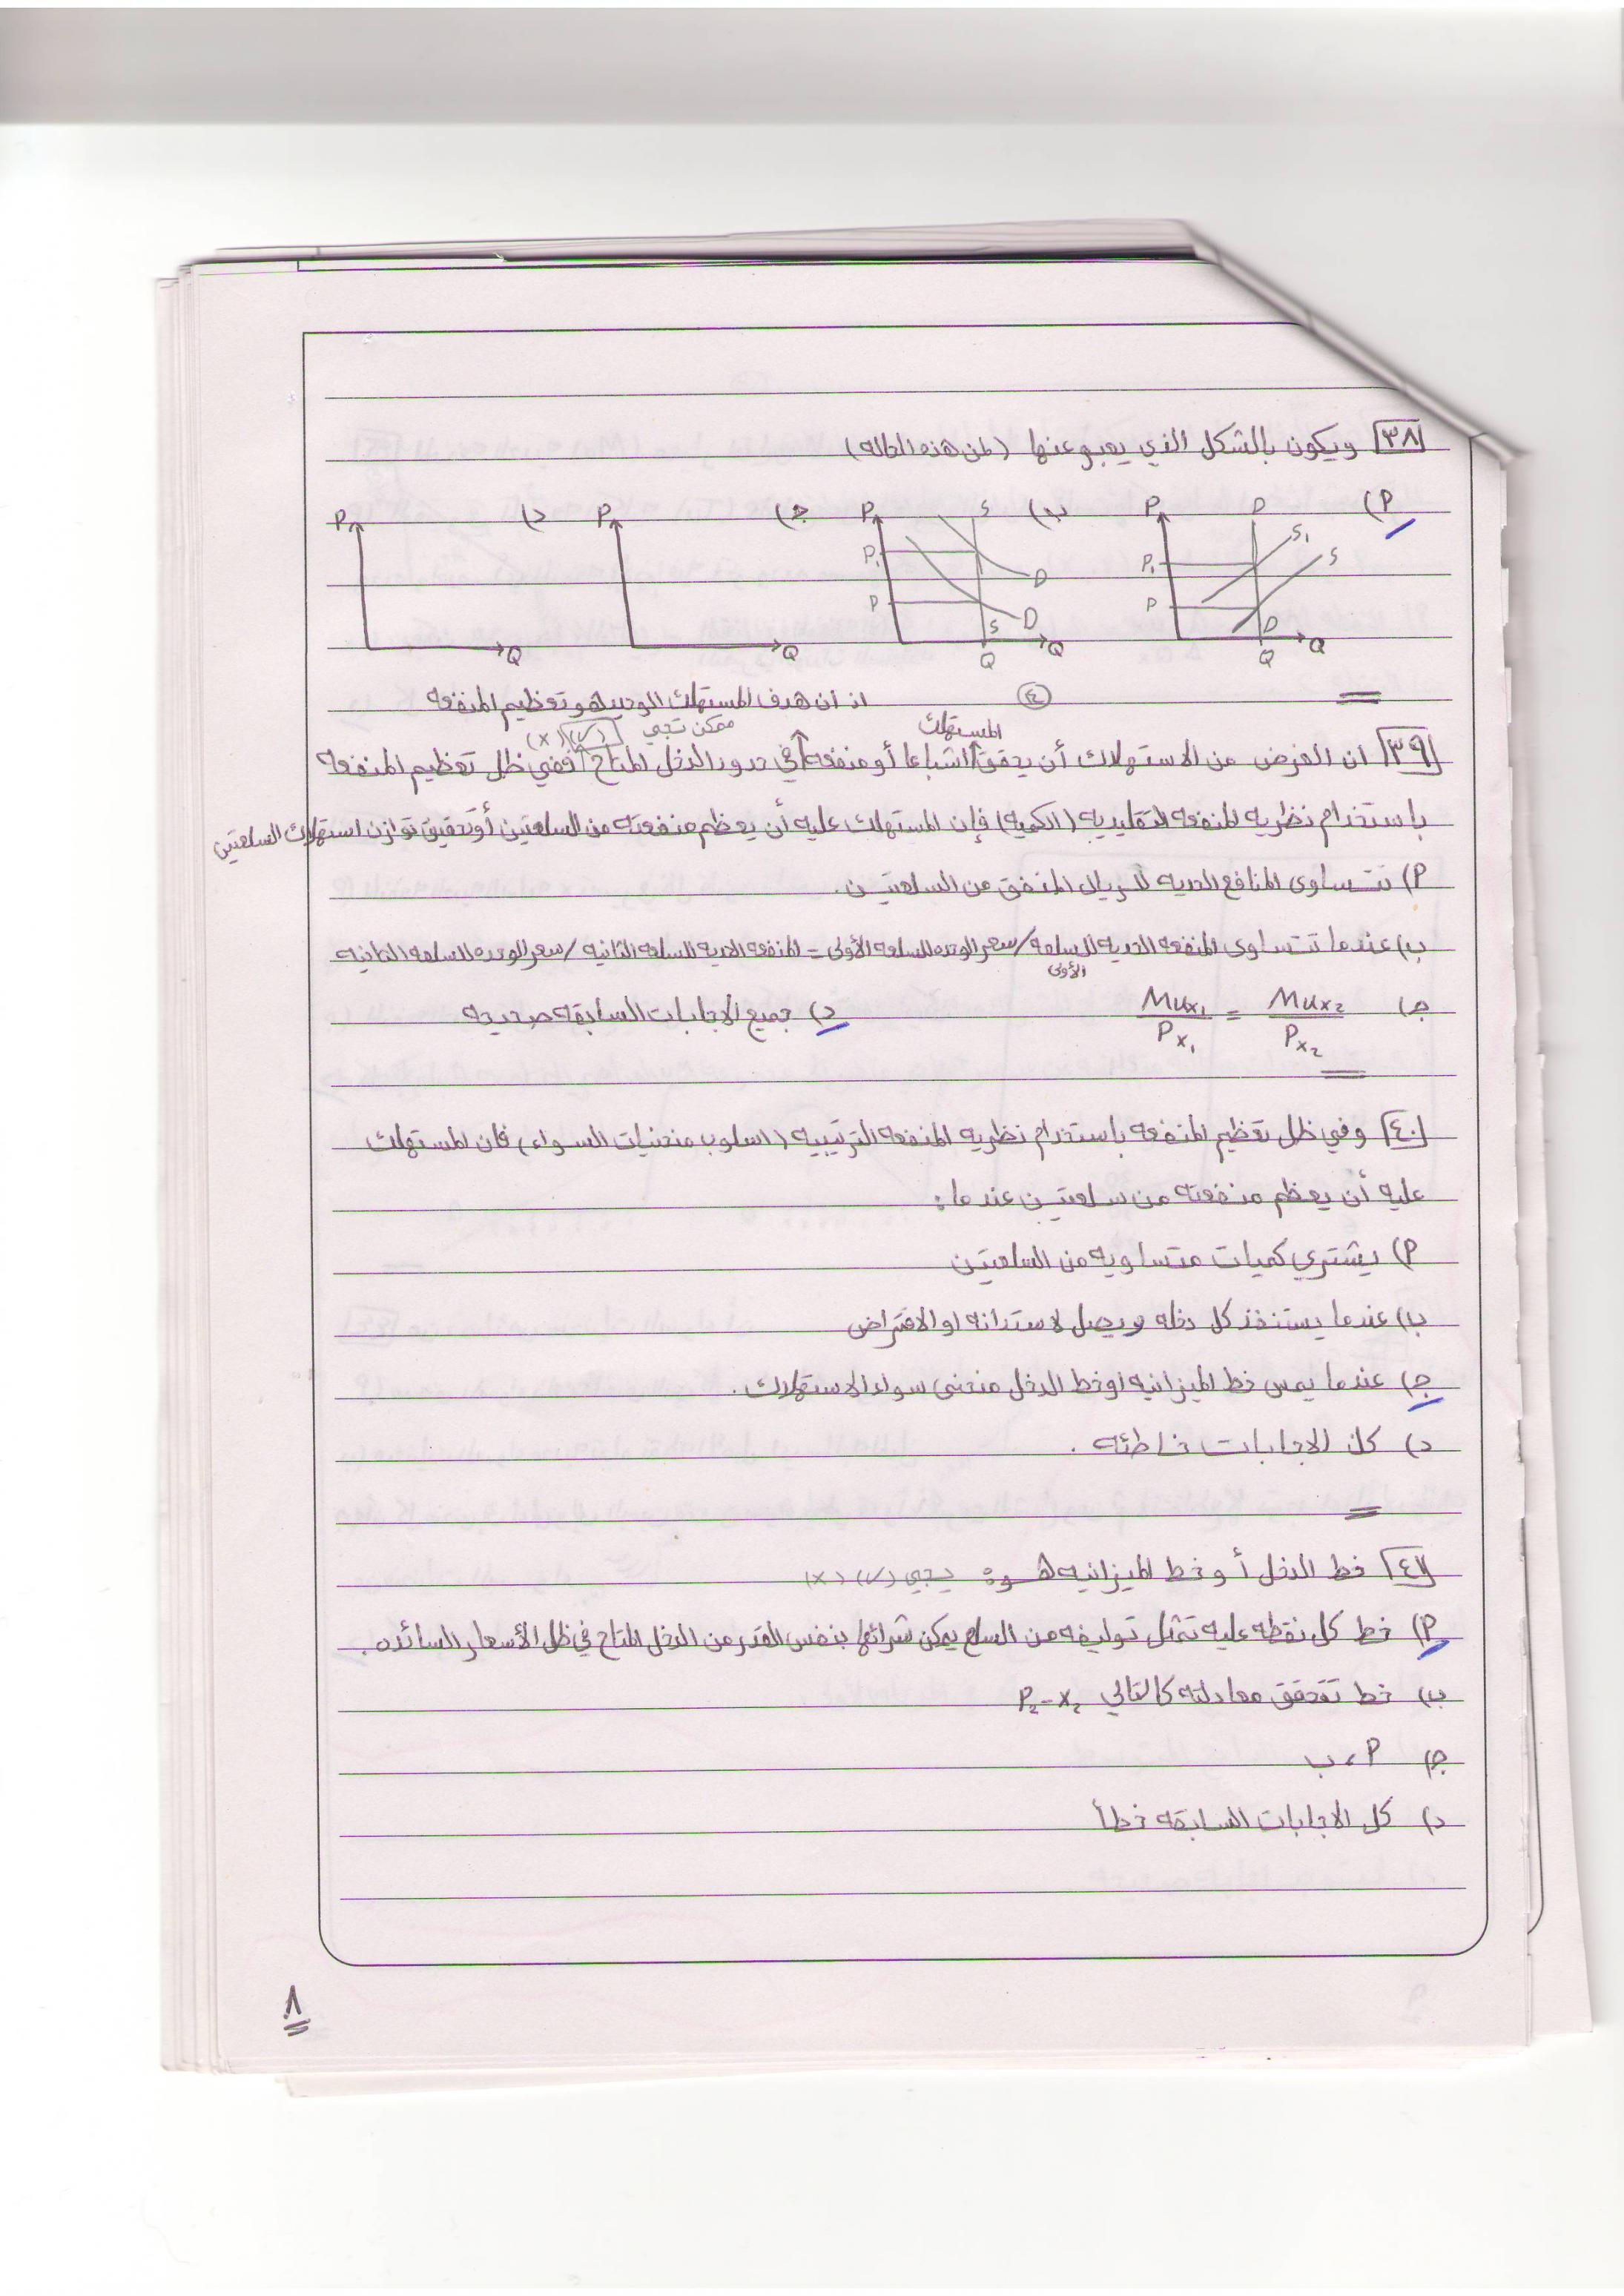 ٣٨ ويكون بالشكل الذي يعبر عنها (لمن هذه الحالة)
أ) ب) ج) د)
P D S₁ S P₁ P D Q Q
P S D P₁ P D S Q Q
P Q
P Q
④ اذ أن هدف المستهلك الوحيد هو تعظيم المنفعه
المستهلك ممكن تجي (✓) (x)
٣٩ ان الغرض من الاستهلاك أن يحقق اشباعا أو منفعه في حدود الدخل المتاح ففي ظل تعظيم المنفعه
باستخدام نظريه المنفعه التقليديه (الكميه) فإن المستهلك عليه أن يعظم منفعته من السلعتين أو تحقيق توازن استهلاك السلعتين
أ) تتساوى المنافع الحديه للريال المنفق من السلعتين.
ب) عندما تتساوى المنفعه الحديه للسلعه الأولى / سعر الوحده للسلعه الأولى = المنفعه الحديه للسلعه الثانيه / سعر الوحده للسلعه الثانيه
ج) Mux₁/Px₁ = Mux₂/Px₂ د) جميع الاجابات السابقه صحيحه
٤٠ وفي ظل تعظيم المنفعه باستخدام نظريه المنفعه الترتيبيه (اسلوب منحنيات السواء) فان المستهلك
عليه أن يعظم منفعته من سلعتين عندما:
أ) يشتري كميات متساويه من السلعتين
ب) عندما يستنفذ كل دخله ويصل لاستدانه او الاقتراض
ج) عندما يمس خط الميزانيه او خط الدخل منحنى سواء الاستهلاك.
د) كل الاجابات خاطئه.
٤١ خط الدخل أو خط الميزانيه هو: يجي (✓) (x)
أ) خط كل نقطه عليه تمثل توليفه من السلع يمكن شرائها بنفس القدر من الدخل المتاح في ظل الأسعار السائده.
ب) خط تتحقق معادلته كالتالي P₂-X₂
ج) أ، ب
د) كل الاجابات السابقه خطأ
٨